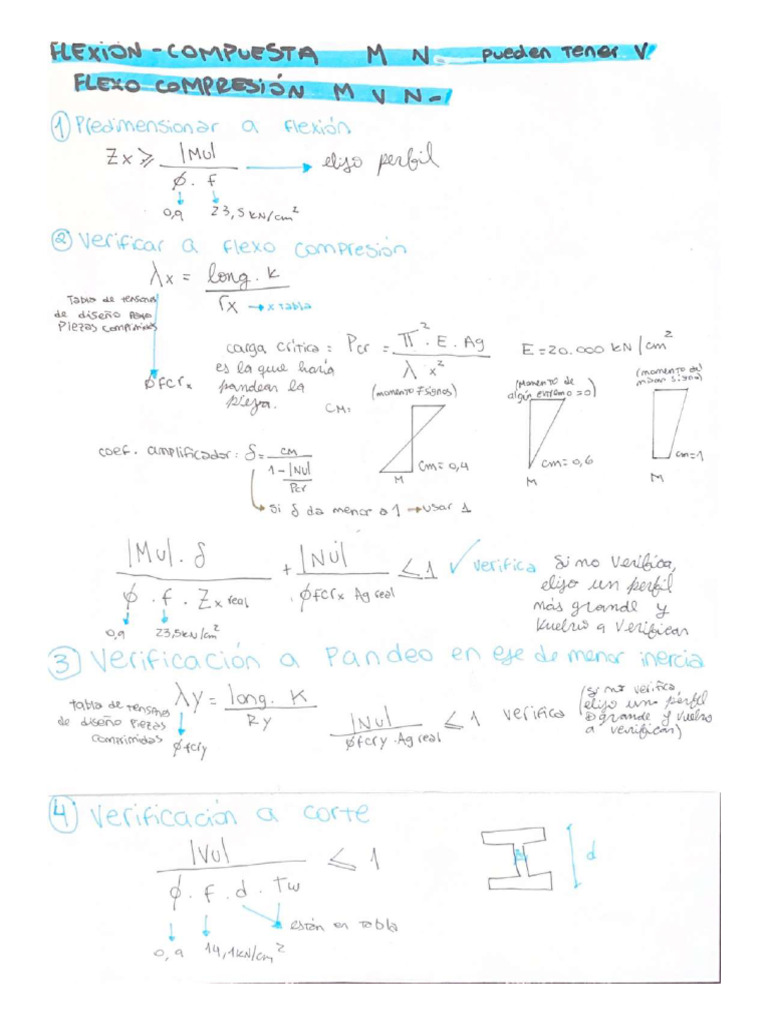 FLEXIÓN - COMPUESTA M N- pueden tener V
FLEXO COMPRESIÓN M V N-
① Predimensionar a flexión
Zx ≥ |Mu| / φ . f → elijo perfil
0,9 23,5 kN/cm²
② Verificar a flexo compresión
λx = long. K / rx → x tabla
Tabla de tensones
de diseño para
Piezas comprimidas
φfcrx
carga crítica: Pcr = π² . E . Ag / λx² E = 20.000 kN/cm²
es la que haría
pandear la
pieza.
CM:
(momento ≠ signos)
(momento de
algún extremo = 0)
(momento del
mismo signo)
Cm = 0,4 Cm = 0,6 Cm = 1
M M M
coef. amplificador: δ = CM / 1 - |Nu| / Pcr
si δ da menor a 1 → usar 1
|Mu| . δ / φ . f . Zx real + |Nu| / φfcrx Ag real ≤ 1 ✓ verifica
0,9 23,5 kN/cm²
Si no verifica,
elijo un perfil
más grande y
vuelvo a verificar
③ Verificación a Pandeo en eje de menor inercia
tabla de tensones
de diseño piezas
comprimidas
λy = long. K / Ry
φfcry
|Nu| / φfcry . Ag real ≤ 1 verifica
(si no verifica,
elijo un perfil
grande y vuelvo
a verificar)
④ Verificación a corte
|Vu| / φ . f . d . Tw ≤ 1
d
están en tabla
0,9 14,1 kN/cm²